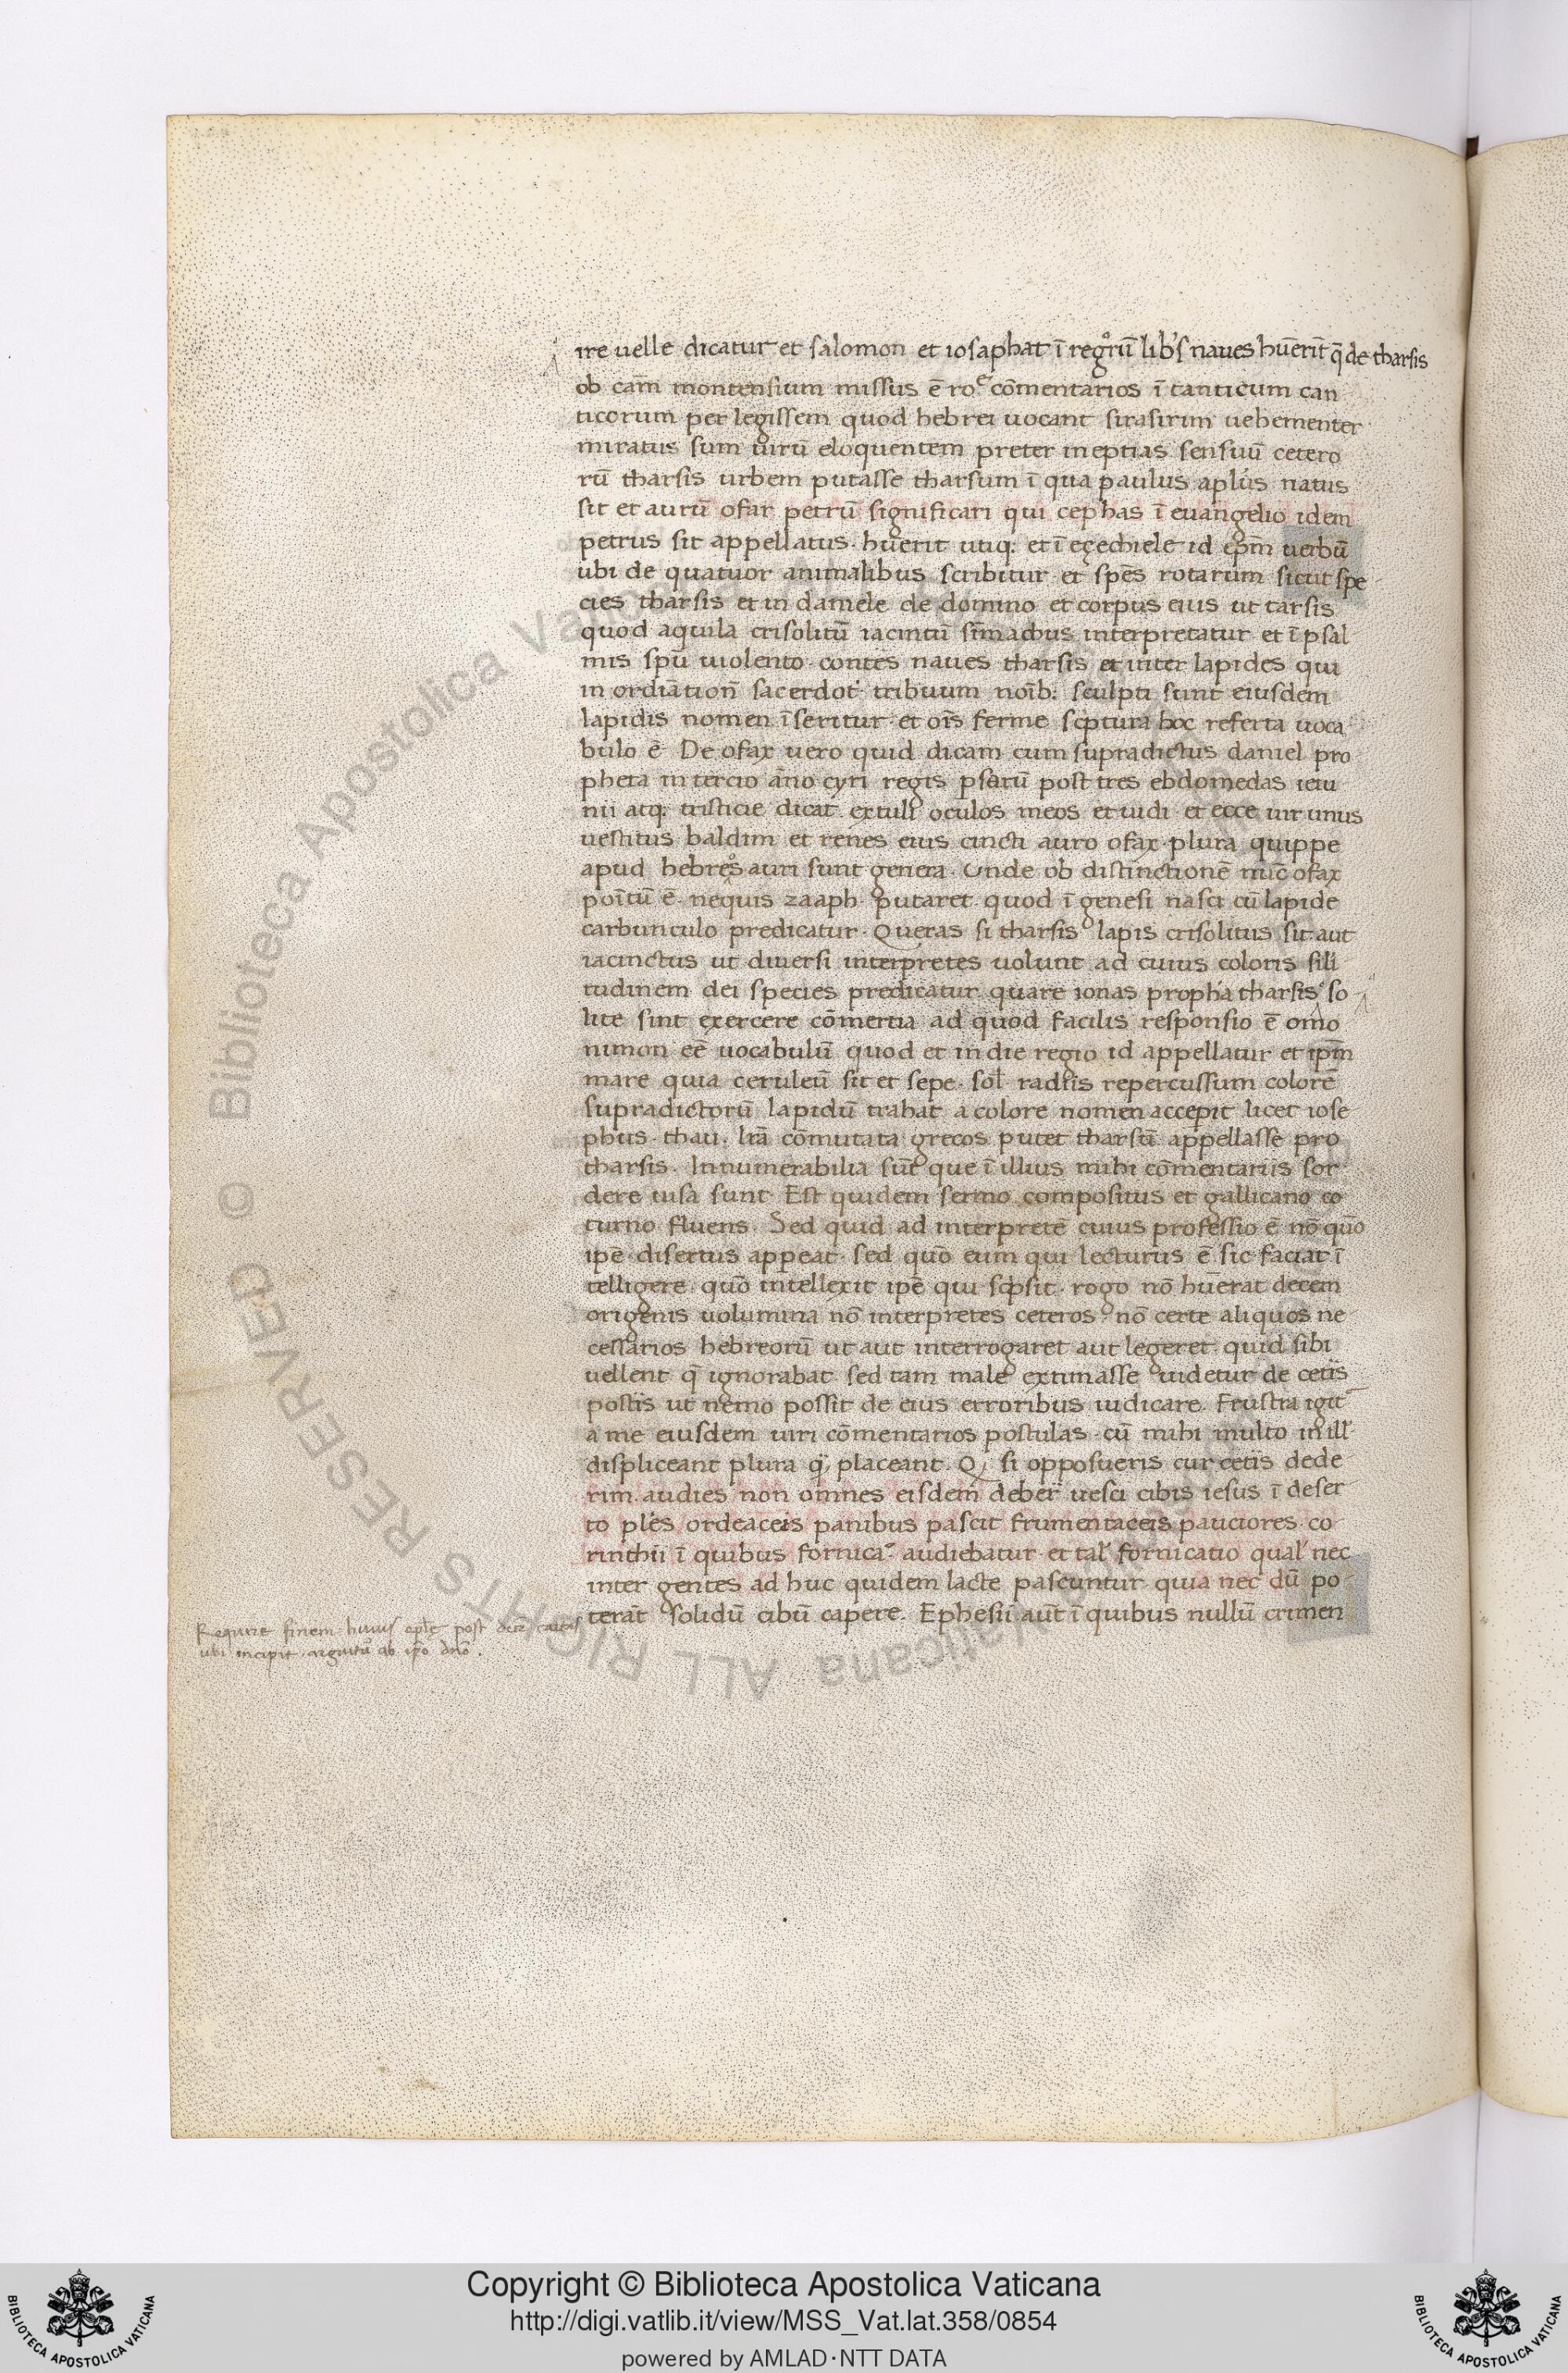 ire uelle dicatur et salomon et iosaphat ī regͦrū lib's naues hūerīt q̄ de tharsis
ob cām montensium missus ē roᵉ cōmentarios ī canticum can
ticorum per legissem quod hebrei uocant sirasirim uehementer
miratus sum uirū eloquentem preter ineptias sensuū cetero
rū tharsis urbem putasse tharsum ī qua paulus aplūs natus
sit et aurū ofar petrū significari qui cephas ī euangelio idem
petrus sit appellatus. hūerit utiq: et ī ezechiele id ipm̄ uerbū
ubi de quatuor animalibus scribitur et spēs rotarum sicut spe
cies tharsis et in daniele de domino et corpus eius ut tarsis
quod aquila crisolitū iacintū sīmachus interpretatur et ī psal
mis spū uiolento contēs naues tharsis et inter lapides qui
in ordiātion̄ sacerdot tribuum noīb: sculpti sunt eiusdem
lapidis nomen īseritur. et oīs ferme scptura hoc referta uoca
bulo ē De ofax uero quid dicam cum supradictus daniel pro
pheta in tercio āno cyri regis psarū post tres ebdomedas ieiu
nii atq: tristicie dicat extuli oculos meos et uidi et ecce uir unus
uestitus baldim et renes eius cincti auro ofax plura quippe
apud hebreͦs auri sunt genera. Unde ob distinctionē nūc ofax
poītū ē. nequis zaaph putaret quod ī genesi nasci cū lapide
carbunculo predicatur. Queras si tharsis lapis crisolitus sit aut
iacinctus ut diuersi interpretes uolunt ad cuius coloris sili
tudinem dei species predicatur quare ionas propha tharsis so
lite sint exercere cōmertia ad quod facilis responsio ē omo
nimon eē uocabulū quod et indie regio id appellatur et ipm̄
mare quia ceruleū sit et sepe sol radiis repercussum colorē
supradictorū lapidū trahat a colore nomen accepit licet iose
phus thau lrā cōmutata grecos putet tharsū appellasse pro
tharsis. Innumerabilia sūt que ī illius mihi cōmentariis sor
dere uisa sunt Est quidem sermo compositus et gallicano co
turno fluens. Sed quid ad interpretē cuius professio ē nō quō
ipē disertus appeat sed quō eum qui lecturus ē sic faciat ī
telligere quō intellexit ipē qui scpsit. rogo nō hūerat decem
origenis uolumina nō interpretes ceteros nō certe aliquos ne
cessarios hebreorū ut aut interrogaret aut legeret quid sibi
uellent q̄ ignorabat sed tam male extimasse uidetur de cetis
postis ut nemo possit de eius erroribus iudicare. Frustra igit
a me eiusdem uiri cōmentarios postulas cū mihi multo in ill
displiceant plura q̄ placeant. Q si opposueris cur cetis dede
rim audies non omnes eisdem deberi uesci cibis iesus ī deser
to plēs ordeaceis panibus pascit frumentaceis pauciores co
rinthii ī quibus fornica audiebatur et tal fornicatio qual nec
inter gentes ad huc quidem lacte pascuntur quia nec dū po
terāt solidū cibū capere. Ephesii aūt ī quibus nullū crimen
Require finem huius eplę post
ubi incipit arguitū ab ipō dnō.
© Biblioteca Apostolica Vaticana ALL RIGHTS RESERVED
Copyright © Biblioteca Apostolica Vaticana
http://digi.vatlib.it/view/MSS_Vat.lat.358/0854
powered by AMLAD·NTT DATA
BIBLIOTECA APOSTOLICA VATICANA
BIBLIOTECA APOSTOLICA VATICANA